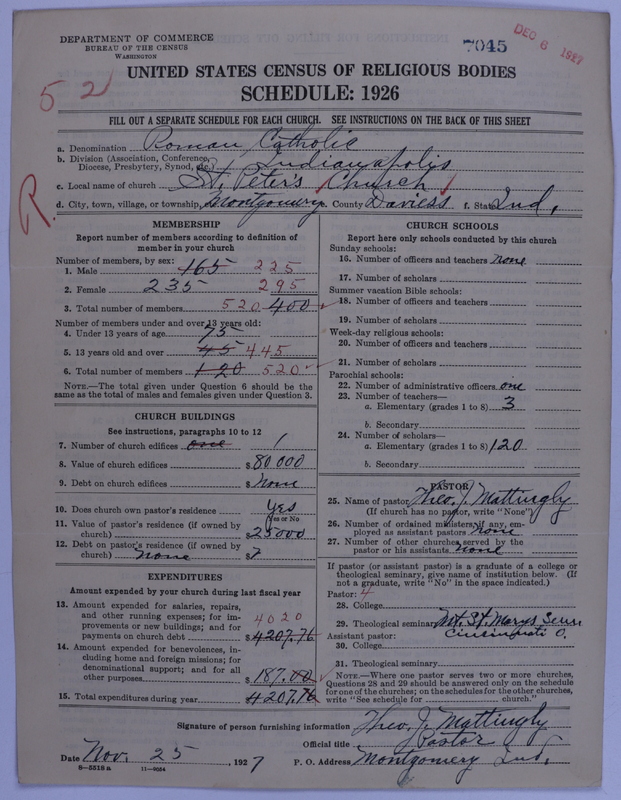 DEPARTMENT OF COMMERCE
BUREAU OF THE CENSUS
WASHINGTON
7045
DEC 6 1927
52
UNITED STATES CENSUS OF RELIGIOUS BODIES
SCHEDULE: 1926
FILL OUT A SEPARATE SCHEDULE FOR EACH CHURCH. SEE INSTRUCTIONS ON THE BACK OF THIS SHEET
R.
a. Denomination Roman Catholic
b. Division (Association, Conference, Diocese, Presbytery, Synod, etc.) Indianapolis
c. Local name of church St. Peter's Church
d. City, town, village, or township Montgomery e. County Daviess f. State Ind.
MEMBERSHIP
Report number of members according to definition of
member in your church
Number of members, by sex:
1. Male 165 225
2. Female 235 295
3. Total number of members 520 400
Number of members under and over 13 years old:
4. Under 13 years of age 75
5. 13 years old and over 45 445
6. Total number of members 120 520
NOTE.—The total given under Question 6 should be
same as the total of males and females given under Question 3.
CHURCH BUILDINGS
See instructions, paragraphs 10 to 12
7. Number of church edifices one 1
8. Value of church edifices $80,000
9. Debt on church edifices $None
10. Does church own pastor's residence Yes
Yes or No
11. Value of pastor's residence (if owned by
church) $25000
12. Debt on pastor's residence (if owned by
church) none $
EXPENDITURES
Amount expended by your church during last fiscal year
13. Amount expended for salaries, repairs,
and other running expenses; for im-
provements or new buildings; and for
payments on church debt 4020 $4207.76
14. Amount expended for benevolences, in-
cluding home and foreign missions; for
denominational support; and for all
other purposes $187.00
15. Total expenditures during year $4207.76
CHURCH SCHOOLS
Report here only schools conducted by this church
Sunday schools:
16. Number of officers and teachers none
17. Number of scholars
Summer vacation Bible schools:
18. Number of officers and teachers
19. Number of scholars
Week-day religious schools:
20. Number of officers and teachers
21. Number of scholars
Parochial schools:
22. Number of administrative officers one
23. Number of teachers—
a. Elementary (grades 1 to 8) 3
b. Secondary
24. Number of scholars—
a. Elementary (grades 1 to 8) 120
b. Secondary
PASTOR
25. Name of pastor Theo. J. Mattingly
(If church has no pastor, write "None")
26. Number of ordained ministers, if any, em-
ployed as assistant pastors none
27. Number of other churches served by the
pastor or his assistants none
If pastor (or assistant pastor) is a graduate of a college or
theological seminary, give name of institution below. (If
not a graduate, write "No" in the space indicated.)
Pastor: 4
28. College
29. Theological seminary Mt. St. Marys Sem
Assistant pastor: Cincinnati O.
30. College
31. Theological seminary
NOTE.—Where one pastor serves two or more churches,
Questions 28 and 29 should be answered only on the schedule
for one of the churches; on the schedules for the other churches,
write "See schedule for church."
Signature of person furnishing information Theo. J. Mattingly
Official title Pastor
Date Nov. 25, 1927 P. O. Address Montgomery Ind.
8—5518a 11—9054